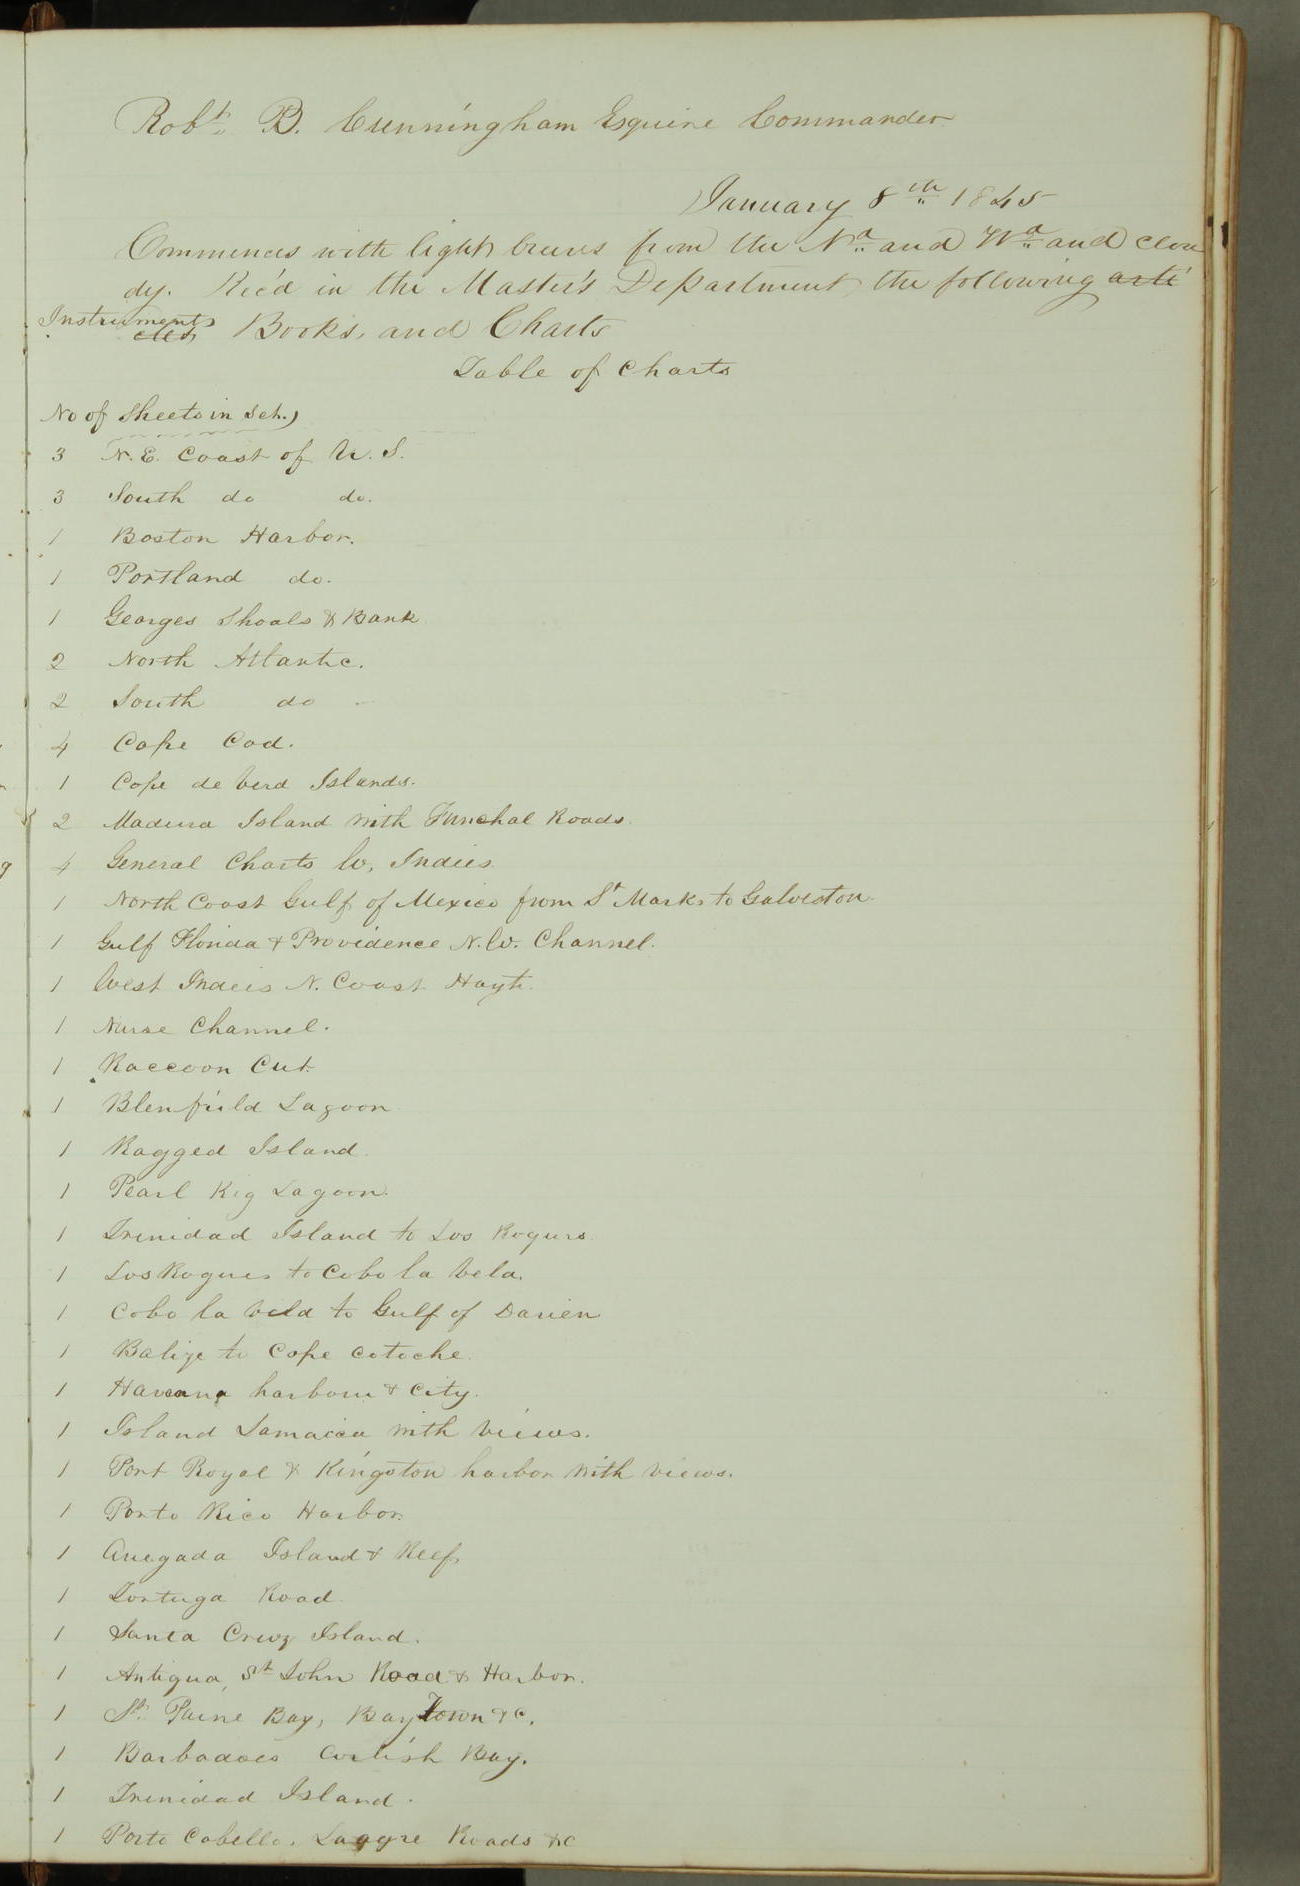 Robt. B. Cunningham Esquire Commander
January 8th 1845
Commences with light breeses from the Nd and Wd and clou
dy. Rec'd in the Master's Department the following arti
Instruments cles Books, and Charts
Table of Charts
No of Sheets in Set.
3 N.E. Coast of U.S.
3 South do do.
1 Boston Harbor.
1 Portland do.
1 Georges Shoals & Bank
2 North Atlantic.
2 South do
4 Cape Cod.
1 Cape de Verd Islands.
2 Madeira Island with Funchal Roads.
4 General Charts W. Indies
1 North Coast Gulf of Mexico from St Marks to Galveston
1 Gulf Florida & Providence N.W. Channel.
1 West Indeis N. Coast Hayti.
1 Nurse Channel.
1 Raccoon Cut
1 Blenfield Lagoon
1 Ragged Island.
1 Pearl Kig Lagoon.
1 Trinidad Island to Los Roques
1 Los Roques to Cobo la Vela.
1 Cobo la Vela to Gulf of Darien
1 Balize to Cape Catoche.
1 Havana harbour & City.
1 Island Jamaica with Views.
1 Port Royal & Kingston harbor with views.
1 Porto Rico Harbor.
1 Anegada Island & Reef
1 Tortuga Road.
1 Santa Cruz Island.
1 Antigua, St John Road & Harbor.
1 St. Bay, Bay Town &c.
1 Barbadoes Carlish Bay.
1 Trinidad Island.
1 Porto Cabello. Roads &c